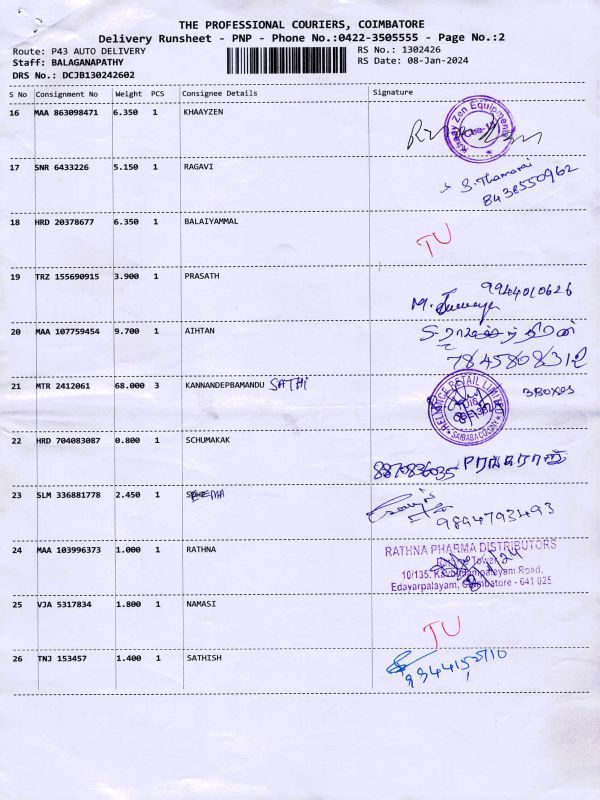 THE PROFESSIONAL COURIERS, COIMBATORE
Delivery Runsheet - PNP - Phone No.:0422-3505555 - Page No.:2
Route: P43 AUTO DELIVERY
RS No.: 1302426
Staff: BALAGANAPATHY
RS Date: 08-Jan-2024
DRS No.: DCJB130242602
S No Consignment No Weight PCS Consignee Details Signature
16 MAA 863098471 6.350 1 KHAAYZEN
Khaay Zen Equipments
17 SNR 6433226 5.150 1 RAGAVI
S. Thamarai
8438550962
18 HRD 20378677 6.350 1 BALAIYAMMAL
TU
19 TRZ 155690915 3.900 1 PRASATH
9944010626
M.
20 MAA 107759454 9.700 1 AIHTAN
7845808312
21 MTR 2412061 68.000 3 KANNANDEPBAMANDU SATHI
RELIANCE RETAIL LIMITED
SAIBABA COLONY
3 BOXES
22 HRD 704083087 0.800 1 SCHUMAKAK
8870836035
23 SLM 336881778 2.450 1
9894793493
24 MAA 103996373 1.000 1 RATHNA
RATHNA PHARMA DISTRIBUTORS
10/135, Road,
Edayarpalayam, Coimbatore - 641 025
8/1/24
25 VJA 5317834 1.800 1 NAMASI
TU
26 TNJ 153457 1.400 1 SATHISH